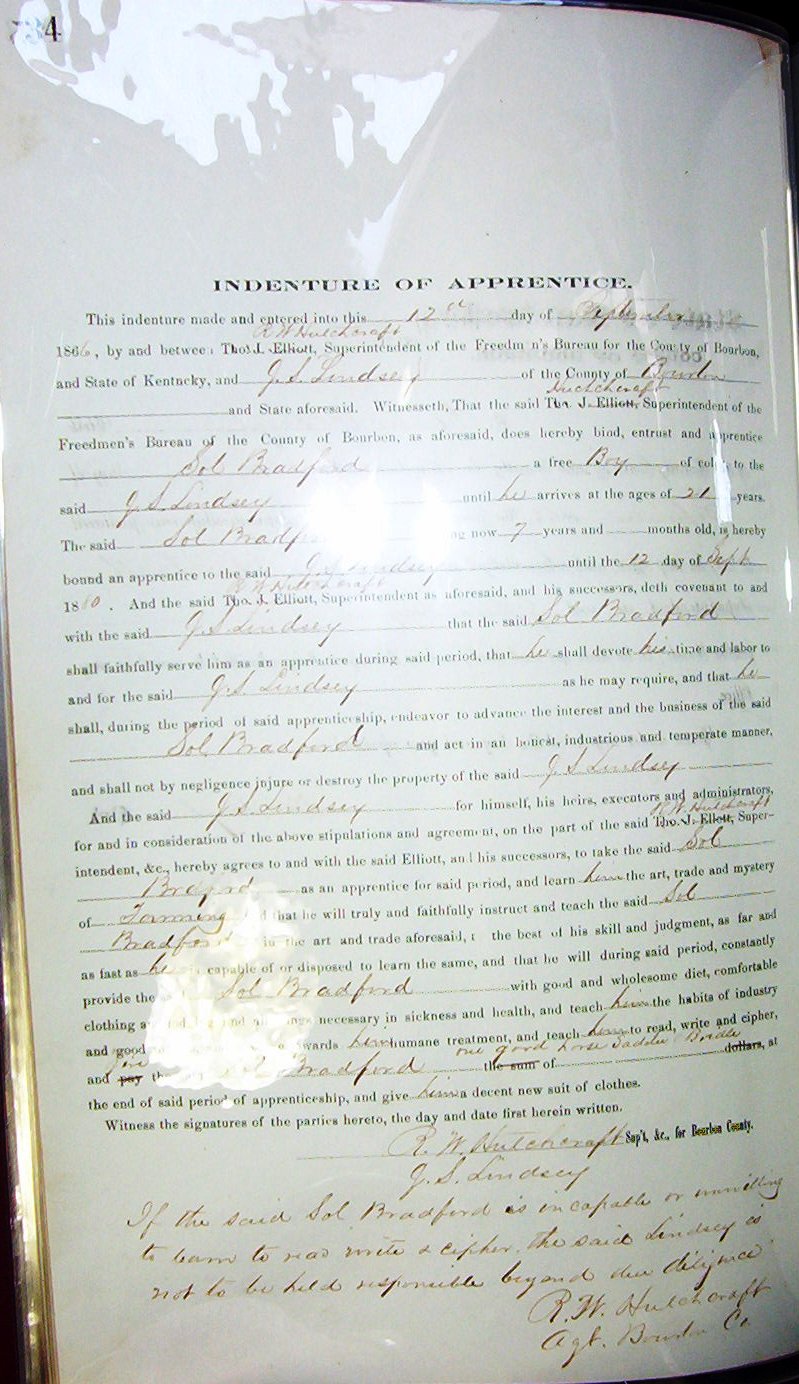 4
INDENTURE OF APPRENTICE.
This indenture made and entered into this 12th day of September
R W Hutchcraft
1866, by and between Tho. J. Elliott, Superintendent of the Freedm n's Bureau for the County of Bourbon,
and State of Kentucky, and J. S. Lindsey of the County of Bourbon
Hutchcraft
and State aforesaid. Witnesseth, That the said Tho. J. Elliott, Superintendent of the
Freedmen's Bureau of the County of Bourbon, as aforesaid, does hereby bind, entrust and apprentice
Sol Bradford a free Boy of color, to the
said J. S. Lindsey until he arrives at the ages of 21 years.
The said Sol Bradford now 7 years and months old, is hereby
bound an apprentice to the said J. S. Lindsey until the 12 day of Sept
R W Hutchcraft
1880. And the said Tho. J. Elliott, Superintendent as aforesaid, and his successors, doth covenant to and
with the said J. S. Lindsey that the said Sol Bradford
shall faithfully serve him as an apprentice during said period, that he shall devote his time and labor to
and for the said J. S. Lindsey as he may require, and that he
shall, during the period of said apprenticeship, endeavor to advance the interest and the business of the said
Sol Bradford and act in an honest, industrious and temperate manner,
and shall not by negligence injure or destroy the property of the said J S Lindsey
And the said J. S. Lindsey for himself, his heirs, executors and administrators,
R. W. Hutchcraft
for and in consideration of the above stipulations and agreement, on the part of the said Tho. J. Ellett, Super-
intendent, &c., hereby agrees to and with the said Elliott, and his successors, to take the said Sol
Bradford as an apprentice for said period, and learn him the art, trade and mystery
of Farming that he will truly and faithfully instruct and teach the said Sol
Bradford in the art and trade aforesaid, the best of his skill and judgment, as far and
as fast as he capable of or disposed to learn the same, and that he will during said period, constantly
provide the Sol Bradford with good and wholesome diet, comfortable
clothing necessary in sickness and health, and teach him the habits of industry
and good wards him humane treatment, and teach him to read, write and cipher,
give one good horse Saddle Bridle
and pay Sol Bradford the sum of dollars, at
the end of said period of apprenticeship, and give him a decent new suit of clothes.
Witness the signatures of the parties hereto, the day and date first herein written.
R. W. Hutchcraft Sup't, &c., for Bourbon County.
J. S. Lindsey
If the said Sol Bradford is incapable or unwilling
to learn to read write & cipher. the said Lindsey is
not to be held responsible beyond due diligence
R. W. Hutchcraft
Agt. Bourbon Co